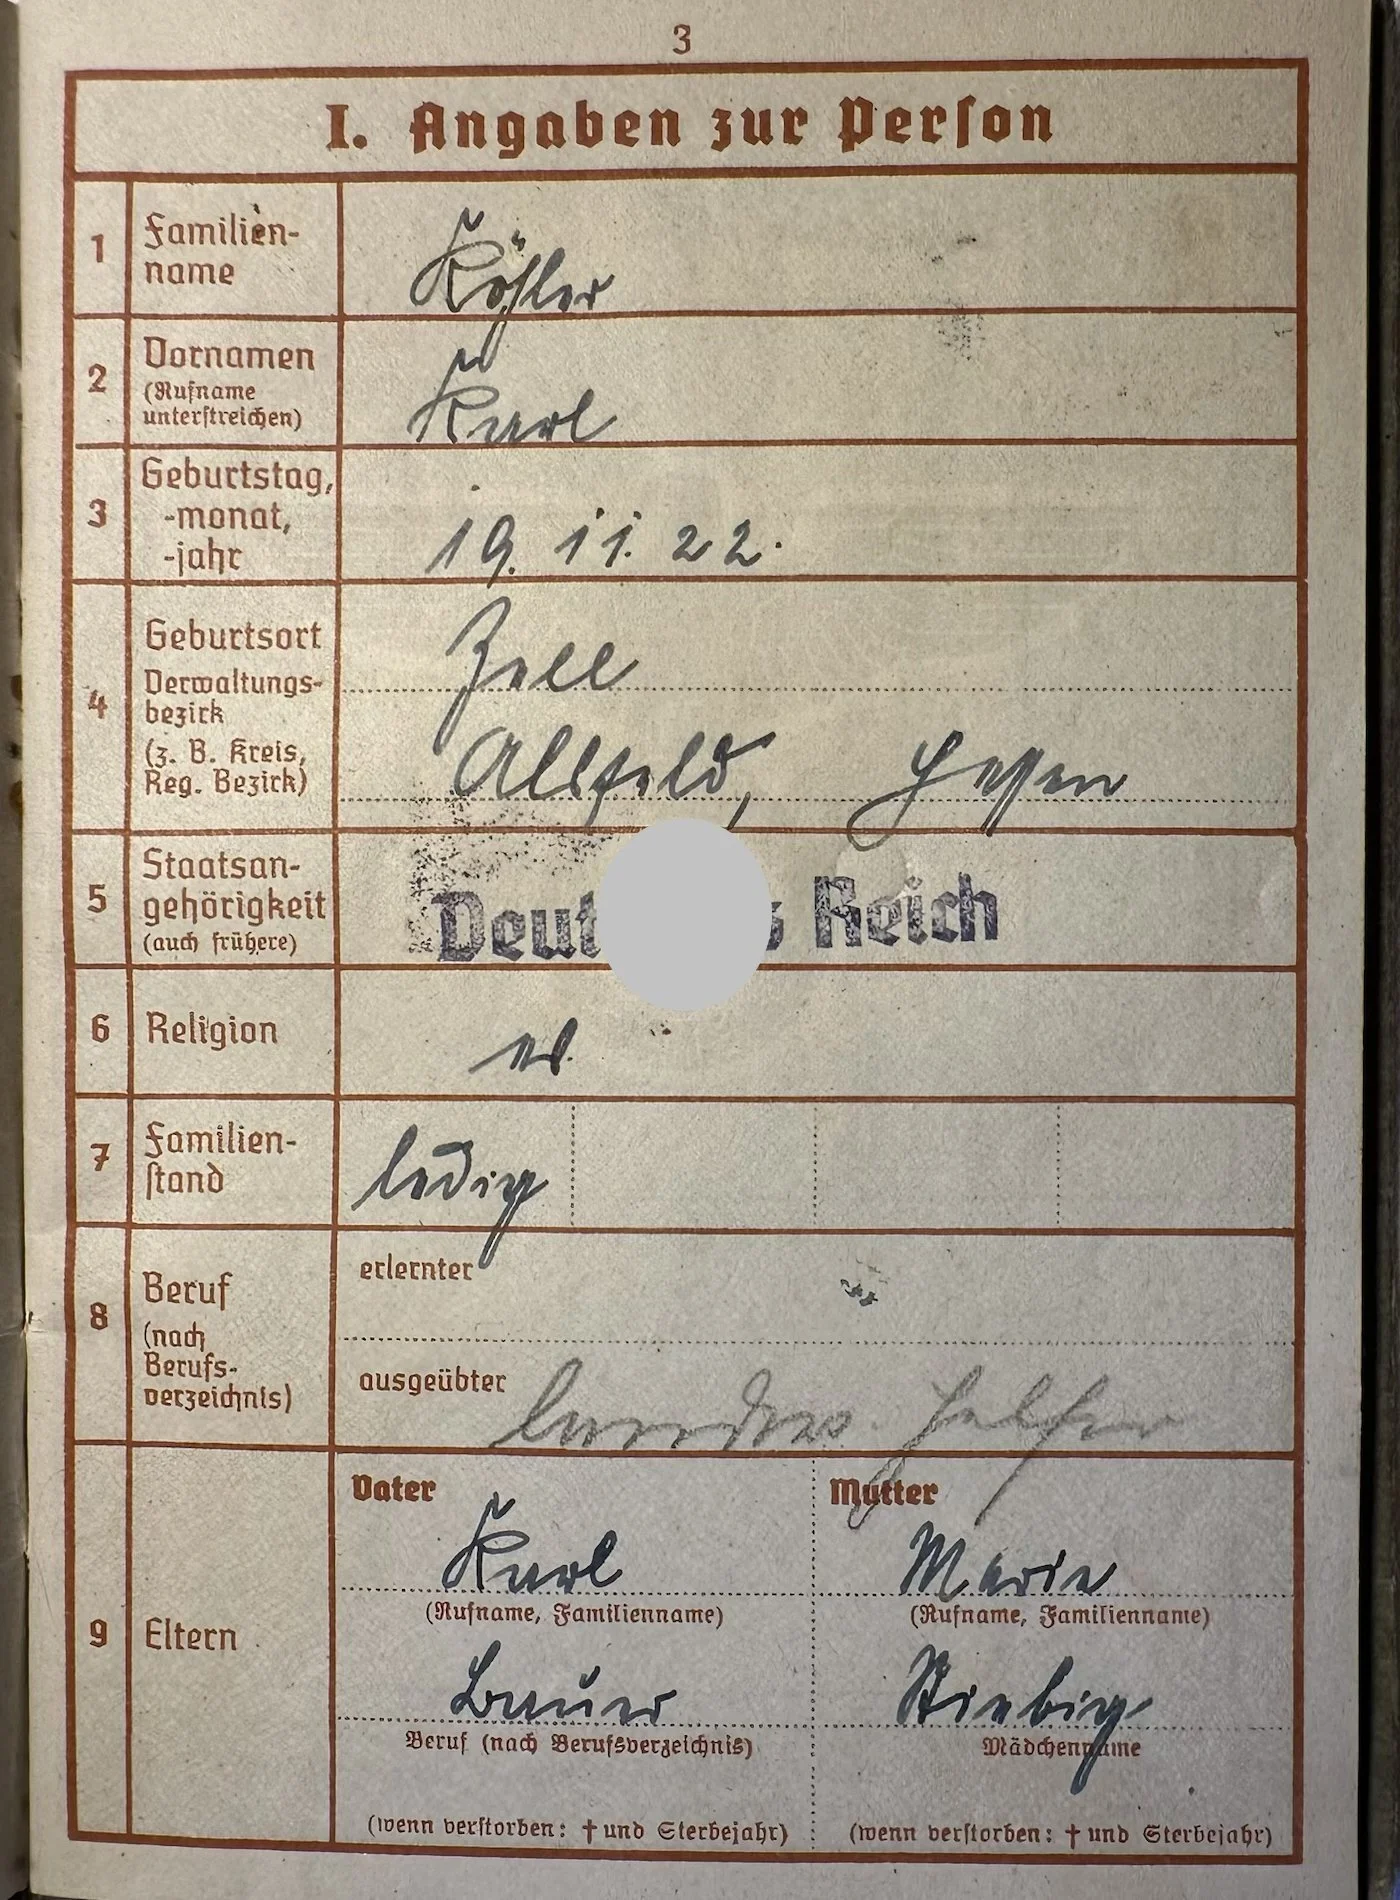 3
I. Angaben zur Person
1 Familien-
name
Köhler
2 Vornamen
(Rufname
unterstreichen)
Karl
3 Geburtstag,
-monat,
-jahr
19. 11. 22.
4 Geburtsort
Zell
Verwaltungs-
bezirk
(z. B. Kreis,
Reg. Bezirk)
Alsfeld, Hessen
5 Staatsan-
gehörigkeit
(auch frühere)
Deut s Reich
6 Religion
ev.
7 Familien-
stand
ledig
8 Beruf
(nach
Berufs-
verzeichnis)
erlernter
ausgeübter landw. Helfer
9 Eltern
Vater
Karl
(Rufname, Familienname)
Bauer
Beruf (nach Berufsverzeichnis)
(wenn verstorben: † und Sterbejahr)
Mutter
Marie
(Rufname, Familienname)
Mädchenname
(wenn verstorben: † und Sterbejahr)